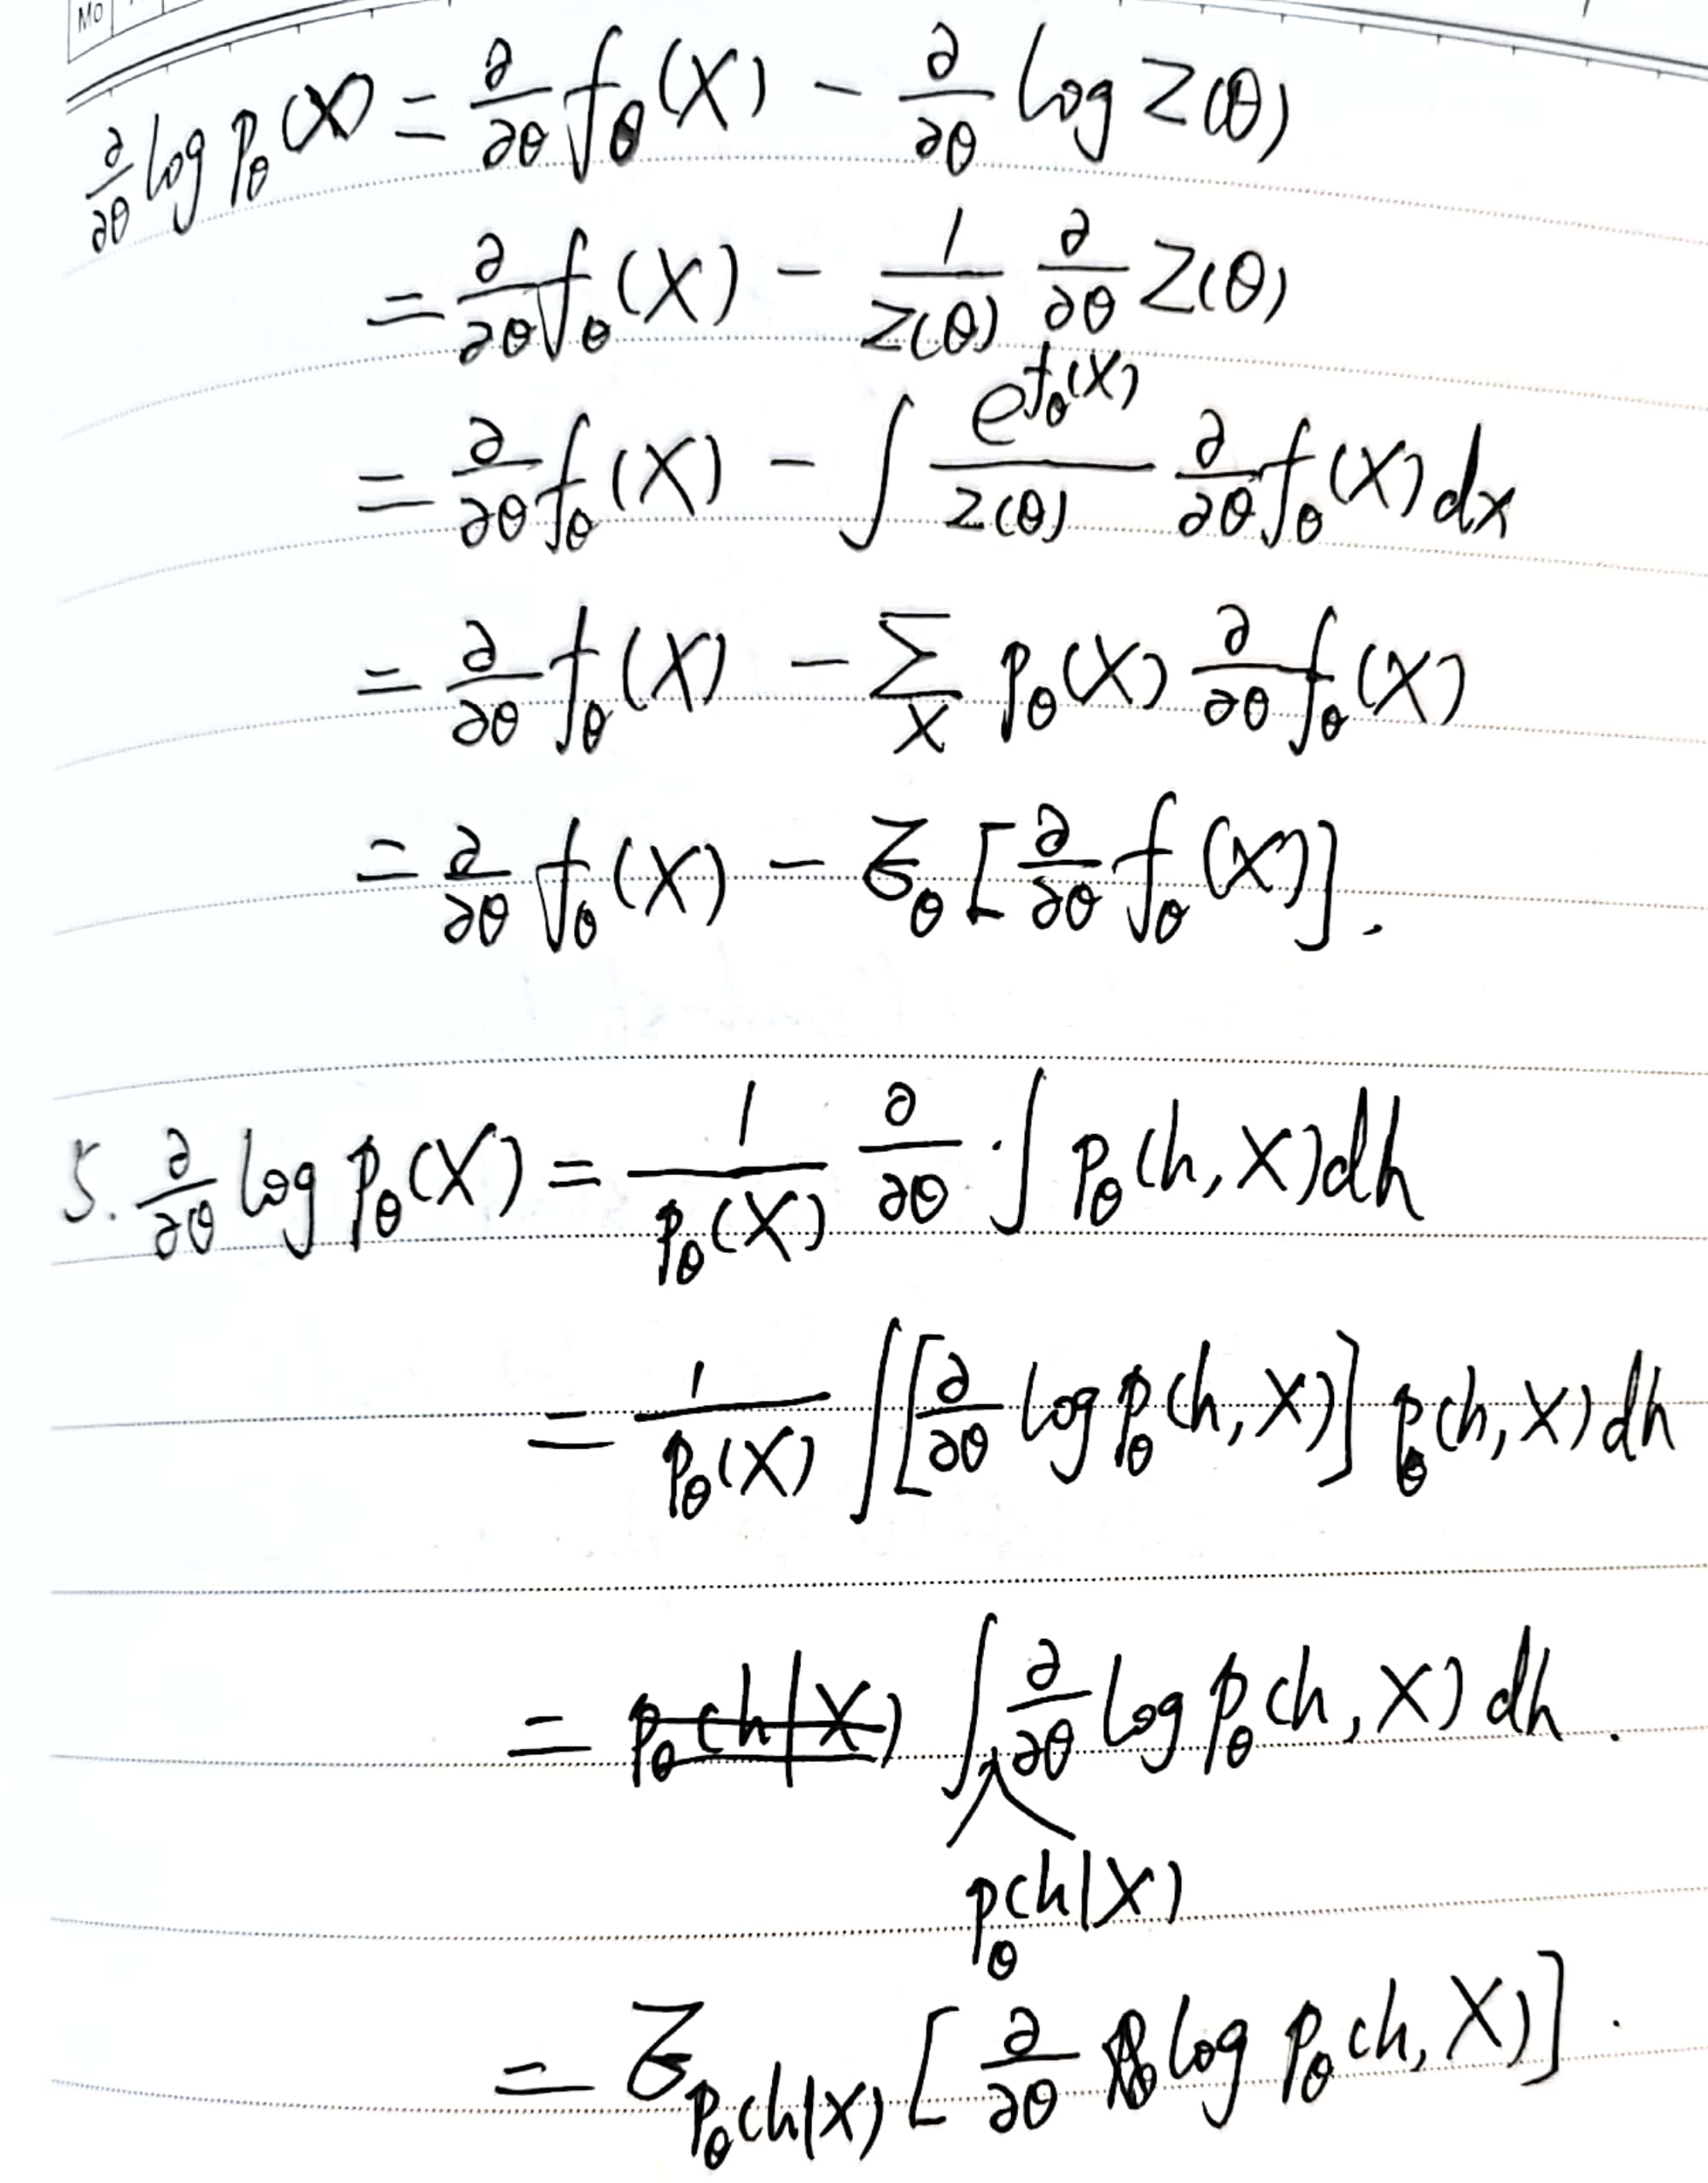 Mo
∂/∂θ log p_θ(X) = ∂/∂θ f_θ(X) − ∂/∂θ log Z(θ)
= ∂/∂θ f_θ(X) − 1/Z(θ) ∂/∂θ Z(θ)
= ∂/∂θ f_θ(X) − ∫ e^{f_θ(X)}/Z(θ) ∂/∂θ f_θ(X) dx
= ∂/∂θ f_θ(X) − Σ_X p_θ(X) ∂/∂θ f_θ(X)
= ∂/∂θ f_θ(X) − E_θ [∂/∂θ f_θ(X)].
5. ∂/∂θ log p_θ(X) = 1/p_θ(X) ∂/∂θ ∫ p_θ(h, X) dh
= 1/p_θ(X) ∫ [∂/∂θ log p_θ(h, X)] p_θ(h, X) dh
= p_θ(h|X) ∫ ∂/∂θ log p_θ(h, X) dh.
p_θ(h|X)
= E_{p_θ(h|X)} [∂/∂θ log p_θ(h, X)].